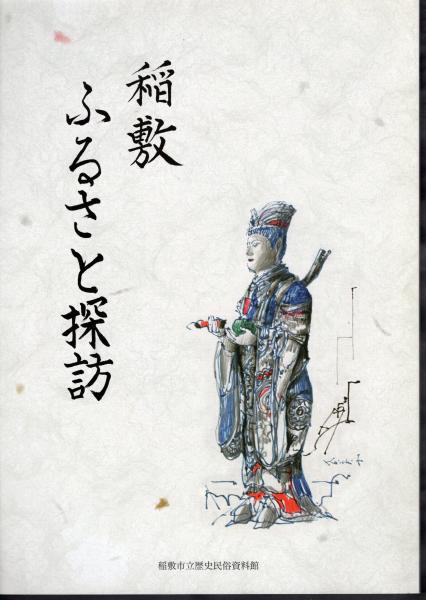 稲敷
ふるさと探訪
稲敷市立歴史民俗資料館